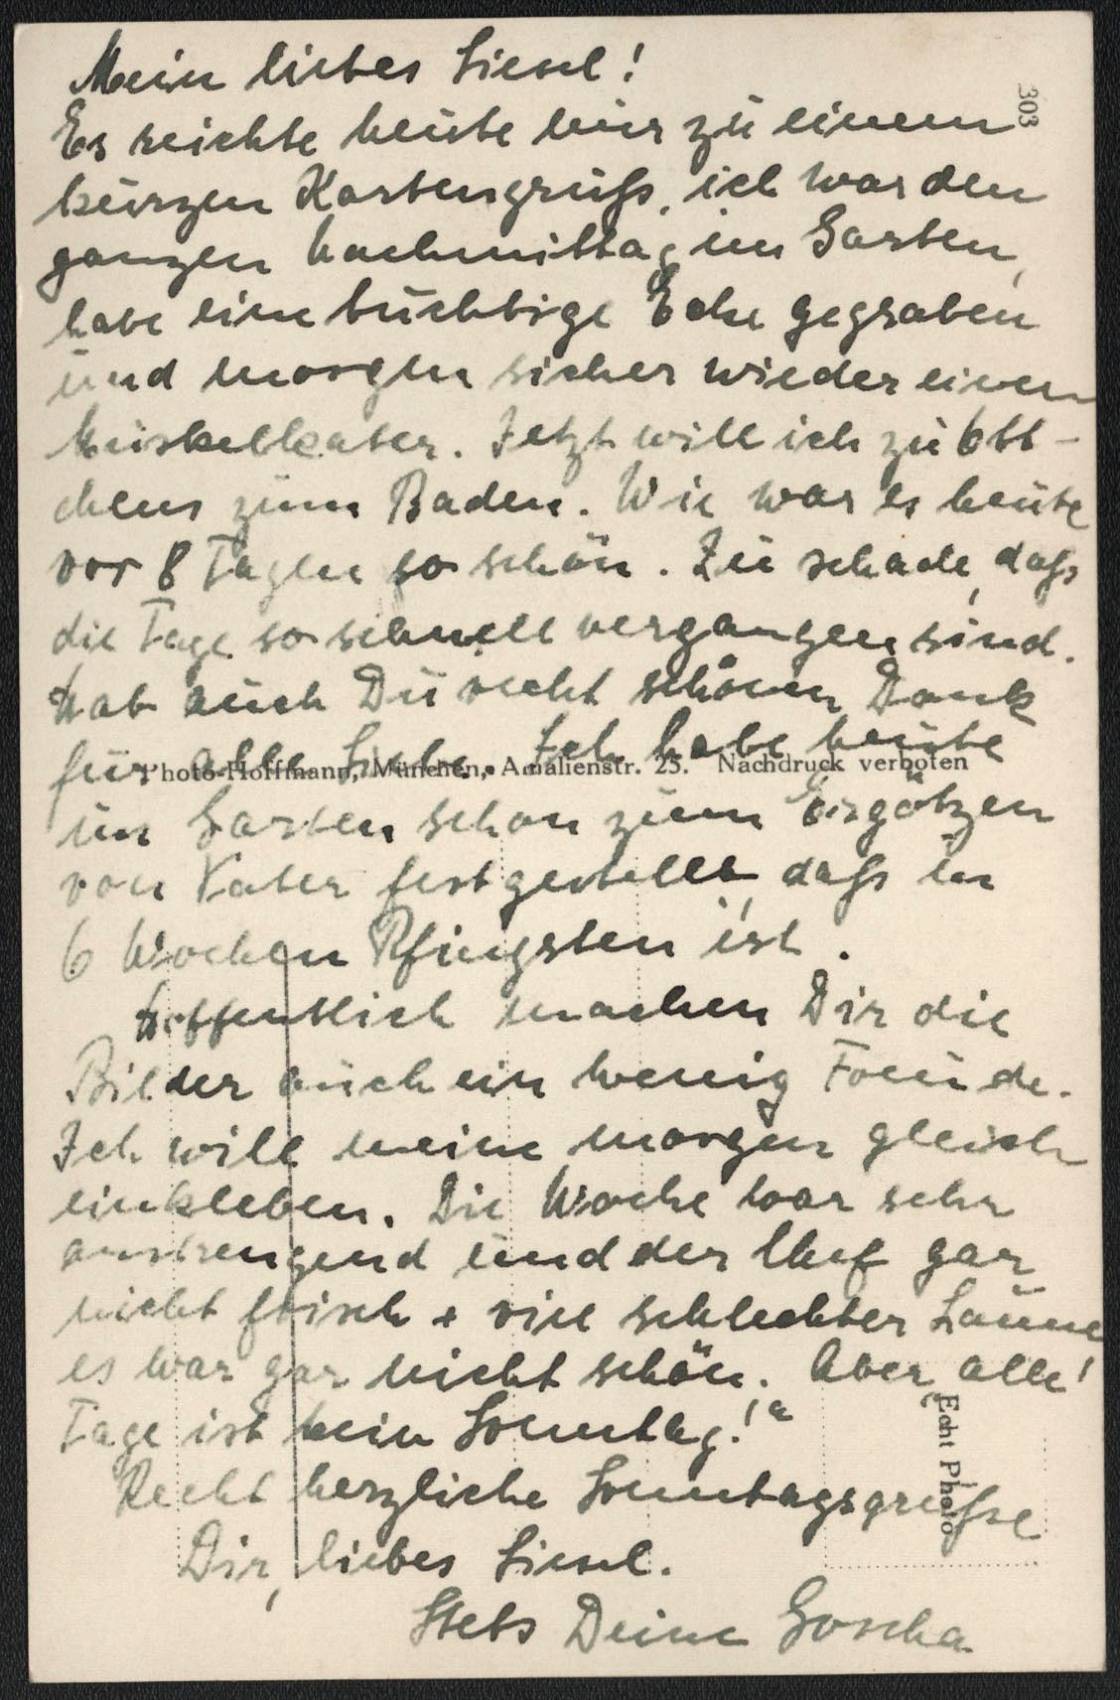 Mein liebes Liesel!
Es reichte heute nur zu einem
kurzen Kartengruß, ich war den
ganzen Nachmittag im Garten,
habe eine tüchtige Ecke gegraben
und morgen sicher wieder einen
Muskelkater. Jetzt will ich zu Ott-
chens zum Baden. Wie war es heute
vor 8 Tagen so schön. Zu schade, daß
die Tage so schnell vergangen sind.
Hab auch Du recht schönen Dank
für alle Liebe. Ich habe heute
Photo-Hoffmann, München, Amalienstr. 25. Nachdruck verboten
im Garten schon zum Ergötzen
von Vater festgestellt, daß in
6 Wochen Pfingsten ist.
Hoffentlich machen Dir die
Bilder auch ein wenig Freude.
Ich will meine morgen gleich
einkleben. Die Woche war sehr
anstrengend und der Chef gar
nicht frisch + viel schlechter Laune
es war gar nicht schön. Aber „alle
Tage ist kein Sonntag!“
Recht herzliche Sonntagsgrüße
Dir, liebes Liesel.
Stets Deine Goscha
303
Echt Photo